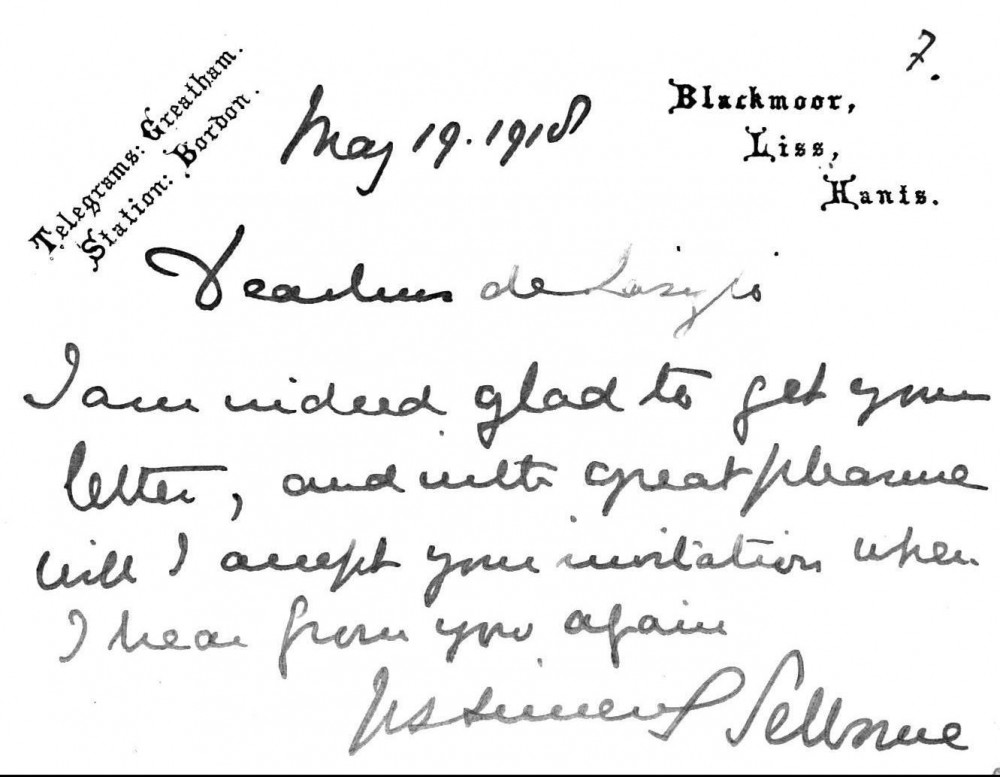 7.
Telegrams: Greatham.
Station: Bordon.
May 19. 1918
Blackmoor,
Liss,
Hants.
Dear Mrs de László
I am indeed glad to get your
letter, and with great pleasure
will I accept your invitation when
I hear from you again
Yrs sincerely Selborne